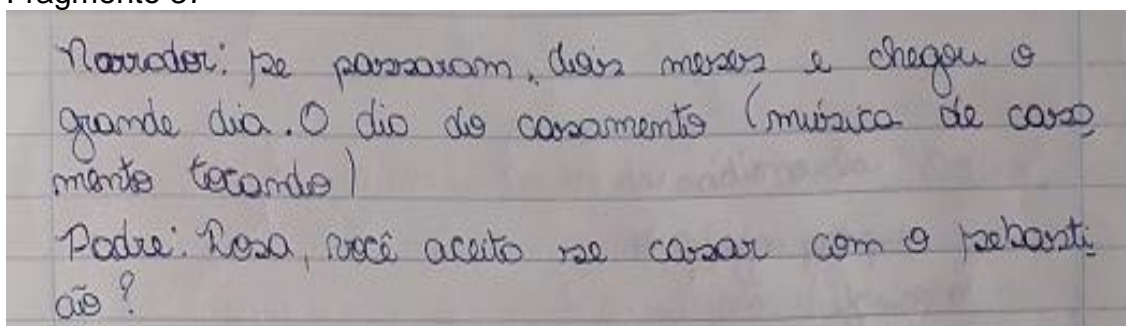 Narrador: se passaram, dois meses e chegou o
grande dia. O dia do casamento (música de casa
mento tocando)
Padre: Rosa, você aceita se casar com o sebasti
ão?